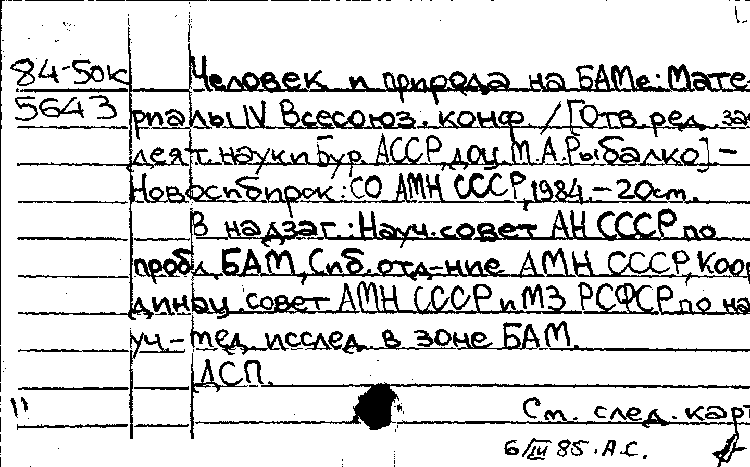 84-50к Человек и природа на БАМе: Мате-
5643 риалы IV Всесоюз. конф. / [Отв. ред. за
деят. науки Бур. АССР, доц. М.А. Рыбалко]. –
Новосибирск: СО АМН СССР, 1984. – 20 см.
В надзаг.: Науч. совет АН СССР по
пробл. БАМ, Сиб. отд-ние АМН СССР, Коор
динац. совет АМН СССР и МЗ РСФСР по на
уч.-мед. исслед. в зоне БАМ.
ДСП.
11 См. след. карт
6/III 85. А.С.